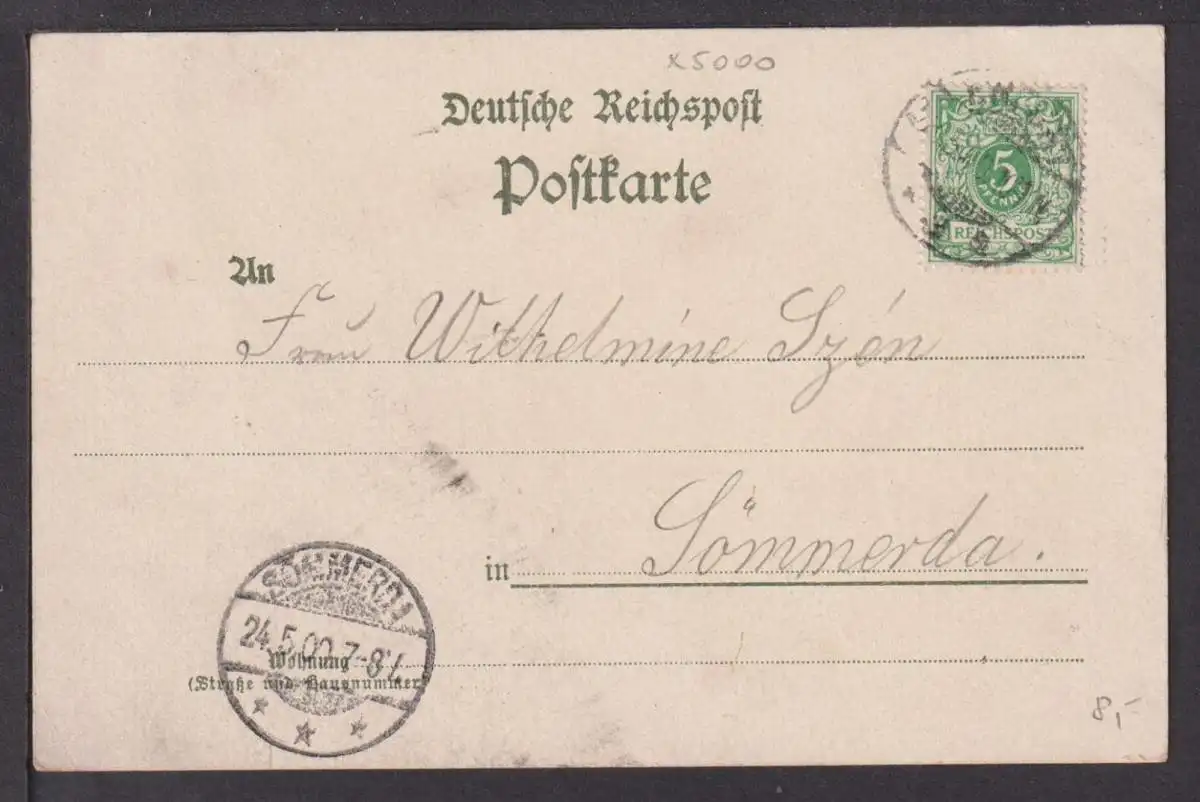 x5000
Deutsche Reichspost
Postkarte
5
PFENNIG
REICHSPOST
An
Frau Wilhelmine Szén
in Sömmerda.
SÖMMERDA
24.5.00.7-8V.
Wohnung
(Straße und Hausnummer)
8,-